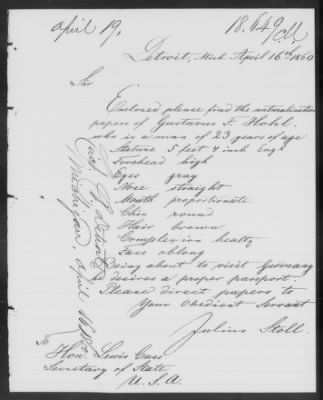 April 19.
18.649
Detroit, Mich April 16th 1860
Sir
Enclosed please find the naturalization
papers of Gustavus F.
who is a man of 23 years of age
Stature 5 feet 4 inch Engl
Forehead high
Eyes gray
Nose straight
Mouth proportionate
Chin round
Hair brown
Complexion healty
Face oblong
Being about to visit Germany
desires a proper passport
Please direct papers to
Your Obedient Servant
Julius Stoll.
To
Hon. Lewis Cass
Secretary of State
U.S.A.
Detroit
Michigan. April